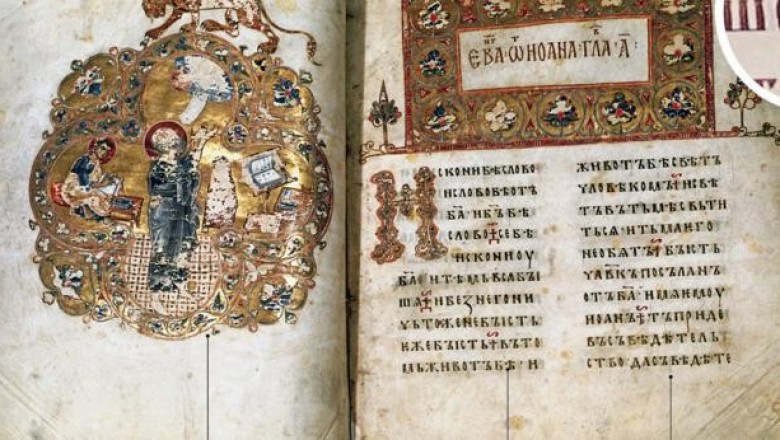 ЕВА҃ · ѾИОАНА · ГЛА · А҃ :
ИСКОНИБѢСЛОВО
ИСЛОВОБѢОТЪ
Б҃АИБ҃ЪБѢ
СЛОВО СЕБѢ
ИСКОНИОУ
Б҃АИТѢМЬВЬСѦБЫ
ШѦ ИБЕЗНЕГОНИ
ЧЬТОЖЕНЕБЫСТЬ
ЕЖЕБЫСТЬ ВЪТО
МЬЖИВОТЪБѢ · И
ЖИВОТЪБѢСВѢТЪ
ЧЛОВѢКОМЪ ИСВѢ
ТЪВЪТЬМѢСВЬТИ
ТЬСѦ ИТЬМАЕГО
НЕОБѦТЪ БЫСТЬ
ЧЛ҃ВКЪПОСЪЛАНЪ
ОТЪБ҃А ИМѦЕМОУ
ИОАНЪ ТЪПРИДЕ
ВЪСЪВѢДѢТЕЛЬ
СТВО ДАСЪВѢДѢТЕ